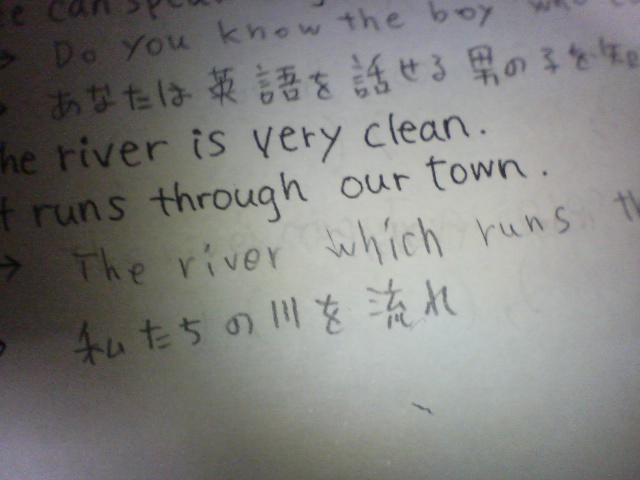 can speak
→ Do you know the boy who
あなたは 英語を 話せる 男の子を知
he river is very clean.
t runs through our town.
→ The river which runs th
私たちの川を流れ